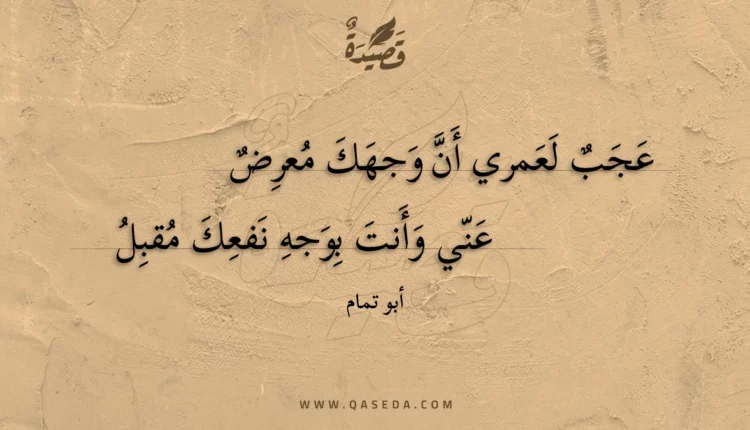 قَصِيدَةٌ
عَجَبٌ لَعَمري أَنَّ وَجهَكَ مُعرِضٌ
عَنّي وَأَنتَ بِوَجهِ نَفعِكَ مُقبِلُ
أبو تمام
WWW.QASEDA.COM